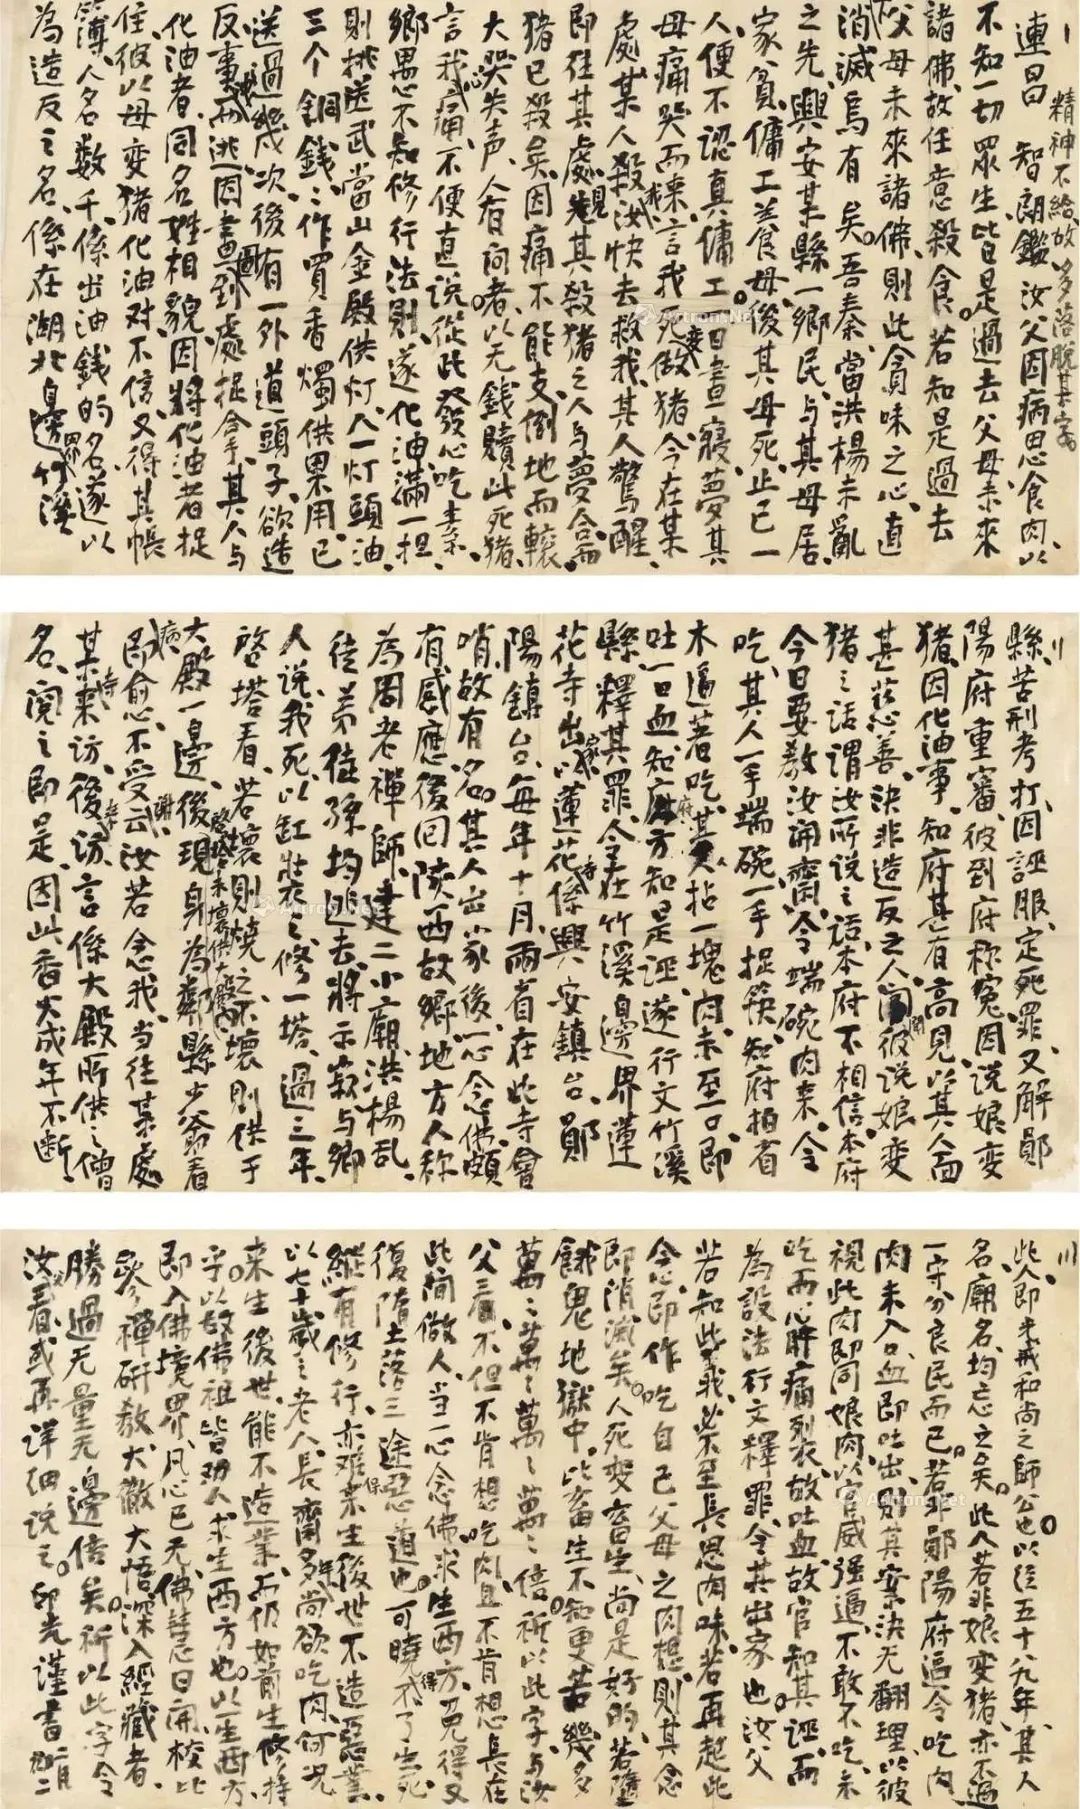 精神不給故多落脫其字
連昌　智朗鑑汝父因病思食肉以
不知一切眾生皆是過去父母未來
諸佛故任意殺食若知是過去
父母未來諸佛則此貪味之心直下
消滅烏有矣。吾秦當洪楊未亂
之先興安某縣一鄉民與其母居
家貧傭工養母後其母死止己一
人便不認真傭工。一日晝寢夢其
母痛哭而來言我死做豬今在某
處某人殺我汝快去救我其人驚醒
即往其處見其殺豬之人與夢合而
豬已殺矣因痛不能支倒地而轅
大哭失声人有問者以无錢贖此死豬
言我心痛不便直說從此發心吃素
鄉愚不知修行法則遂化油滿一担
則挑送武當山金殿供灯人一灯頭油
三个銅錢作買香燭供果用已
送過幾次後有一外道頭子欲造
反事露而逃因畫圖到處捉拿其人与
化油者同名姓相貌因將化油者捉
住彼以母變豬化油对不信又得其帳
簿人名數千係出油錢的名遂以
為造反之名係在湖北邊界竹溪
縣苦刑考打因誣服定死罪又解鄖
陽府重審彼到府称冤因說娘变
豬因化油事知府甚有高見以其人面
甚慈善決非造反之人聞彼說娘変
豬之話謂汝所說之話本府不相信本府
今日要教汝開齋令端碗肉来令
吃其人一手端碗一手捉筷知府拍省
木逼著吃其人拈一塊肉未至口即
吐一口血知府方知是誣遂行文竹溪
縣釋其罪令在竹溪邊界蓮
花寺出家以蓮花寺係興安鎮台鄖
陽鎮台每年十月兩省在此寺會
哨故有名其人出家後一心念佛頗
有感應後回陝西故鄉地方人称
為周老禪師建二小廟洪楊乱
徒弟徒孫均逃去將示寂与鄉
人說我死以缸裝之修一塔過三年
啓塔看若壞則燒之不壞則供于
大殿一邊後啓塔未壞供大殿現身為鄰縣少爺看
病愈不受謝云汝若念我当往某處
某寺來訪後去訪言係大殿所供之僧
名閱之即是因此香火成年不断
此人即未戒和尚之師公也以經五十八九年其人
名廟名均忘之矣此人若非娘變豬亦不過
一守分良民而已若非鄖陽府逼令吃肉
肉未入口血即吐出則其案決无翻理以彼
視此肉即同娘肉以官威强逼不敢不吃未
吃而心肝痛裂故吐血故官知其誣而
為設法行文釋罪令其出家也汝父
若知此義必不至長思肉味若再起此
念即作吃自己父母之肉想則其念
即消滅矣。人死变畜生尚是好的若墮
餓鬼地獄中比畜生不知更苦幾多
萬萬萬萬萬萬倍祈以此字与汝
父看不但不肯想吃肉且不肯想長在
此間做人当一心念佛求生西方免得又
復墮落三途惡道也。可曉得不了生死
縱有修行亦难保来生後世不造惡業
以七十歲之老人長齋多年尚欲吃肉何况
来生後世能不造業而仍如前生修持
乎。以故佛祖皆劝人求生西方也。以一生西方
即入佛境界凡心已无佛慧日開校比
參禪研教大徹大悟深入經藏者
勝過无量无邊倍矣。祈以此字令
汝父看或再詳細說之。印光謹書 二月
Artron.Net